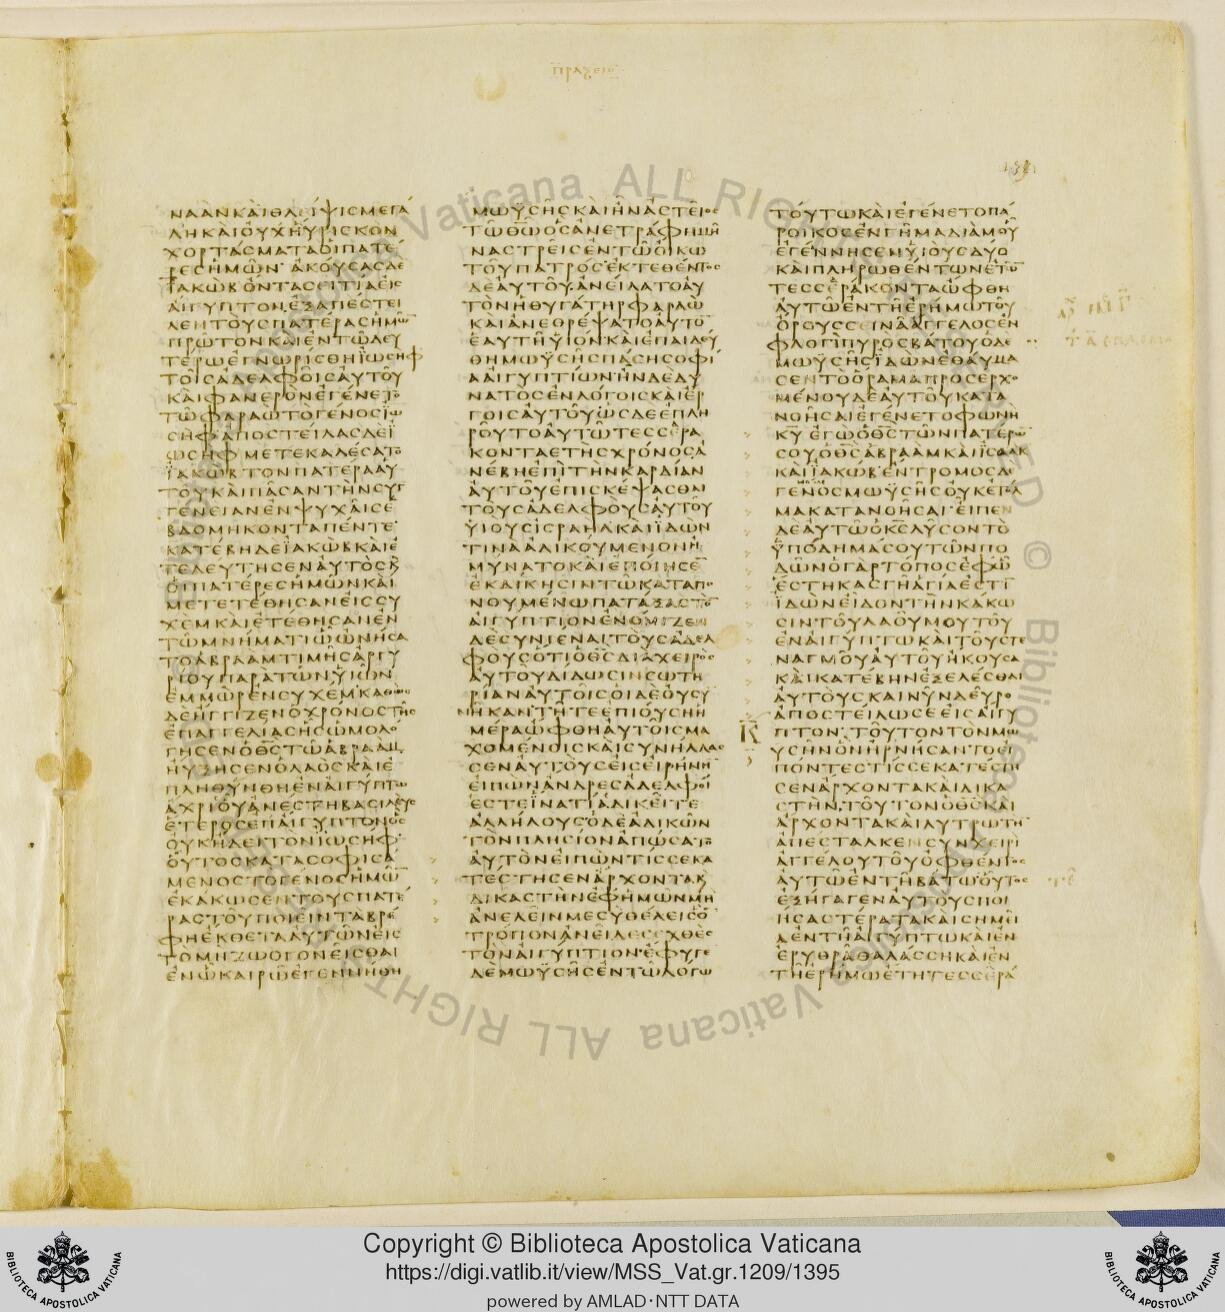 πραξεις
ΝΑΑΝΚΑΙΘΛΕΙΨΙΣΜΕΓΑ
ΛΗΚΑΙΟΥΧΗΥΡΙΣΚΟΝ
ΧΟΡΤΑΣΜΑΤΑΟΙΠΑΤΕ
ΡΕΣΗΜΩΝ ΑΚΟΥΣΑΣΔΕ
ΙΑΚΩΒΟΝΤΑΣΕΙΤΙΑΕΙΣ
ΑΙΓΥΠΤΟΝΕΞΑΠΕΣΤΕΙ
ΛΕΝΤΟΥΣΠΑΤΕΡΑΣΗΜΩ̅
ΠΡΩΤΟΝΚΑΙΕΝΤΩΔΕΥ
ΤΕΡΩΕΓΝΩΡΙΣΘΗΙΩΣΗΦ
ΤΟΙΣΑΔΕΛΦΟΙΣΑΥΤΟΥ
ΚΑΙΦΑΝΕΡΟΝΕΓΕΝΕΤΟ
ΤΩΦΑΡΑΩΤΟΓΕΝΟΣΙΩ
ΣΗΦΑΠΟΣΤΕΙΛΑΣΔΕΪ
ΩΣΗΦΜΕΤΕΚΑΛΕΣΑΤΟ
ΪΑΚΩΒΤΟΝΠΑΤΕΡΑΑΥ
ΤΟΥΚΑΙΠΑΣΑΝΤΗΝΣΥΓ
ΓΕΝΕΙΑΝΕΝΨΥΧΑΙΣΕ
ΒΔΟΜΗΚΟΝΤΑΠΕΝΤΕ
ΚΑΤΕΒΗΔΕΪΑΚΩΒΚΑΙΕ
ΤΕΛΕΥΤΗΣΕΝΑΥΤΟΣΚ
ΟΙΠΑΤΕΡΕΣΗΜΩΝΚΑΙ
ΜΕΤΕΤΕΘΗΣΑΝΕΙΣΣΥ
ΧΕΜΚΑΙΕΤΕΘΗΣΑΝΕΝ
ΤΩΜΝΗΜΑΤΙΩΩΝΗΣΑ
ΤΟΑΒΡΑΑΜΤΙΜΗΣΑΡΓΥ
ΡΙΟΥΠΑΡΑΤΩΝΥΙΩΝ
ΕΜΜΩΡΕΝΣΥΧΕΜΚΑΘΩΣ
ΔΕΗΓΓΙΖΕΝΟΧΡΟΝΟΣΤΗΣ
ΕΠΑΓΓΕΛΙΑΣΗΣΩΜΟΛΟ
ΓΗΣΕΝΟΘ̅Σ̅ΤΩΑΒΡΑΑΜ
ΗΥΞΗΣΕΝΟΛΑΟΣΚΑΙΕ
ΠΛΗΘΥΝΘΗΕΝΑΙΓΥΠΤΩ
ΑΧΡΙΟΥΑΝΕΣΤΗΒΑΣΙΛΕΥΣ
ΕΤΕΡΟΣΕΠΑΙΓΥΠΤΟΝΟΣ
ΟΥΚΗΔΕΙΤΟΝΙΩΣΗΦ
ΟΥΤΟΣΚΑΤΑΣΟΦΙΣΑ
ΜΕΝΟΣΤΟΓΕΝΟΣΗΜΩ̅
ΕΚΑΚΩΣΕΝΤΟΥΣΠΑΤΕ
ΡΑΣΤΟΥΠΟΙΕΙΝΤΑΒΡΕ
ΦΗΕΚΘΕΤΑΑΥΤΩΝΕΙΣ
ΤΟΜΗΖΩΟΓΟΝΕΙΣΘΑΙ
ΕΝΩΚΑΙΡΩΕΓΕΝΝΗΘΗ
ΜΩΫΣΗΣΚΑΙΗΝΑΣΤΕΙΟΣ
ΤΩΘΩΟΣΑΝΕΤΡΑΦΗΜΗ
ΝΑΣΤΡΕΙΣΕΝΤΩΟΙΚΩ
ΤΟΥΠΑΤΡΟΣΕΚΤΕΘΕΝΤΟΣ
ΔΕΑΥΤΟΥΑΝΕΙΛΑΤΟΑΥ
ΤΟΝΗΘΥΓΑΤΗΡΦΑΡΑΩ
ΚΑΙΑΝΕΘΡΕΨΑΤΟΑΥΤΟ̅
ΕΑΥΤΗΥΙΟΝΚΑΙΕΠΑΙΔΕΥ
ΘΗΜΩΫΣΗΣΠΑΣΗΣΟΦΙ
ΑΑΙΓΥΠΤΙΩΝΗΝΔΕΔΥ
ΝΑΤΟΣΕΝΛΟΓΟΙΣΚΑΙΕΡ
ΓΟΙΣΑΥΤΟΥΩΣΔΕΕΠΛΗ
ΡΟΥΤΟΑΥΤΩΤΕΣΣΕΡΑ
ΚΟΝΤΑΕΤΗΣΧΡΟΝΟΣΑ
ΝΕΒΗΕΠΙΤΗΝΚΑΡΔΙΑΝ
ΑΥΤΟΥΕΠΙΣΚΕΨΑΣΘΑΙ
ΤΟΥΣΑΔΕΛΦΟΥΣΑΥΤΟΥ
ΥΙΟΥΣΙΣΡΑΗΛΚΑΙΪΔΩΝ
ΤΙΝΑΑΔΙΚΟΥΜΕΝΟΝΗ
ΜΥΝΑΤΟΚΑΙΕΠΟΙΗΣΕ̅
ΕΚΔΙΚΗΣΙΝΤΩΚΑΤΑΠΟ
ΝΟΥΜΕΝΩΠΑΤΑΞΑΣΤΟ̅
ΑΙΓΥΠΤΙΟΝΕΝΟΜΙΖΕΝ
ΔΕΣΥΝΙΕΝΑΙΤΟΥΣΑΔΕΛ
ΦΟΥΣΟΤΙΟΘ̅Σ̅ΔΙΑΧΕΙΡΟΣ
ΑΥΤΟΥΔΙΔΩΣΙΝΣΩΤΗ
ΡΙΑΝΑΥΤΟΙΣΟΙΔΕΟΥΣΥ
ΝΗΚΑΝΤΗΤΕΕΠΙΟΥΣΗΗ
ΜΕΡΑΩΦΘΗΑΥΤΟΙΣΜΑ
ΧΟΜΕΝΟΙΣΚΑΙΣΥΝΗΛΛΑΣ
ΣΕΝΑΥΤΟΥΣΕΙΣΕΙΡΗΝΗ̅
ΕΙΠΩΝΑΝΔΡΕΣΑΔΕΛΦΟΙ
ΕΣΤΕΙΝΑΤΙΑΔΙΚΕΙΤΕ
ΑΛΛΗΛΟΥΣΟΔΕΑΔΙΚΩΝ
ΤΟΝΠΛΗΣΙΟΝΑΠΩΣΑΤΟ
ΑΥΤΟΝΕΙΠΩΝΤΙΣΣΕΚΑ
ΤΕΣΤΗΣΕΝΑΡΧΟΝΤΑΚ
ΔΙΚΑΣΤΗΝΕΦΗΜΩΝΜΗ
ΑΝΕΛΕΙΝΜΕΣΥΘΕΛΕΙΣΟ̅
ΤΡΟΠΟΝΑΝΕΙΛΕΣΕΧΘΕΣ
ΤΟΝΑΙΓΥΠΤΙΟΝΕΦΥΓΕ
ΔΕΜΩΫΣΗΣΕΝΤΩΛΟΓΩ
ΤΟΥΤΩΚΑΙΕΓΕΝΕΤΟΠΑ
ΡΟΙΚΟΣΕΝΓΗΜΑΔΙΑΜΟΥ
ΕΓΕΝΝΗΣΕΝΥΙΟΥΣΔΥΟ
ΚΑΙΠΛΗΡΩΘΕΝΤΩΝΕΤΩ̅
ΤΕΣΣΕΡΑΚΟΝΤΑΩΦΘΗ
ΑΥΤΩΕΝΤΗΕΡΗΜΩΤΟΥ
ΟΡΟΥΣΣΕΙΝΑΑΓΓΕΛΟΣΕΝ
ΦΛΟΓΙΠΥΡΟΣΒΑΤΟΥΟΔΕ
ΜΩΫΣΗΣΪΔΩΝΕΘΑΥΜΑ
ΣΕΝΤΟΟΡΑΜΑΠΡΟΣΕΡΧΟ
ΜΕΝΟΥΔΕΑΥΤΟΥΚΑΤΑ
ΝΟΗΣΑΙΕΓΕΝΕΤΟΦΩΝΗ
Κ̅Υ̅ΕΓΩΟΘ̅Σ̅ΤΩΝΠΑΤΕΡΩ̅
ΣΟΥΟΘ̅Σ̅ΑΒΡΑΑΜΚΑΙΙΣΑΑΚ
ΚΑΙΪΑΚΩΒΕΝΤΡΟΜΟΣΔΕ
ΓΕΝΟΜΕΝΟΣΜΩΫΣΗΣΟΥΚΕΤΟΛ
ΜΑΚΑΤΑΝΟΗΣΑΙΕΙΠΕΝ
ΔΕΑΥΤΩΟΚ̅Σ̅ΛΥΣΟΝΤΟ
ΫΠΟΔΗΜΑΣΟΥΤΩΝΠΟ
ΔΩΝΟΓΑΡΤΟΠΟΣΕΦΩ̅
ΕΣΤΗΚΑΣΓΗΑΓΙΑΕΣΤΙ̅
ΪΔΩΝΕΙΔΟΝΤΗΝΚΑΚΩ
ΣΙΝΤΟΥΛΑΟΥΜΟΥΤΟΥ
ΕΝΑΙΓΥΠΤΩΚΑΙΤΟΥΣΤΕ
ΝΑΓΜΟΥΑΥΤΟΥΗΚΟΥΣΑ
ΚΑΙΚΑΤΕΒΗΝΕΞΕΛΕΣΘΑΙ
ΑΥΤΟΥΣΚΑΙΝΥΝΔΕΥΡΟ
ΑΠΟΣΤΕΙΛΩΣΕΕΙΣΑΙΓΥ
ΠΤΟΝΤΟΥΤΟΝΤΟΝΜΩ
ΥΣΗΝΟΝΗΡΝΗΣΑΝΤΟΕΙ
ΠΟΝΤΕΣΤΙΣΣΕΚΑΤΕΣΤΗ
ΣΕΝΑΡΧΟΝΤΑΚΑΙΔΙΚΑ
ΣΤΗΝΤΟΥΤΟΝΟΘ̅Σ̅ΚΑΙ
ΑΡΧΟΝΤΑΚΑΙΛΥΤΡΩΤΗ̅
ΑΠΕΣΤΑΛΚΕΝΣΥΝΧΕΙΡΙ
ΑΓΓΕΛΟΥΤΟΥΟΦΘΕΝΤΟΣ
ΑΥΤΩΕΝΤΗΒΑΤΩΟΥΤΟΣ
ΕΞΗΓΑΓΕΝΑΥΤΟΥΣΠΟΙ
ΗΣΑΣΤΕΡΑΤΑΚΑΙΣΗΜΕΙ
ΑΕΝΤΗΑΙΓΥΠΤΩΚΑΙΕΝ
ΕΡΥΘΡΑΘΑΛΑΣΣΗΚΑΙΕΝ
ΤΗΕΡΗΜΩΕΤΗΤΕΣΣΕΡΑ
Copyright © Biblioteca Apostolica Vaticana
https://digi.vatlib.it/view/MSS_Vat.gr.1209/1395
powered by AMLAD·NTT DATA